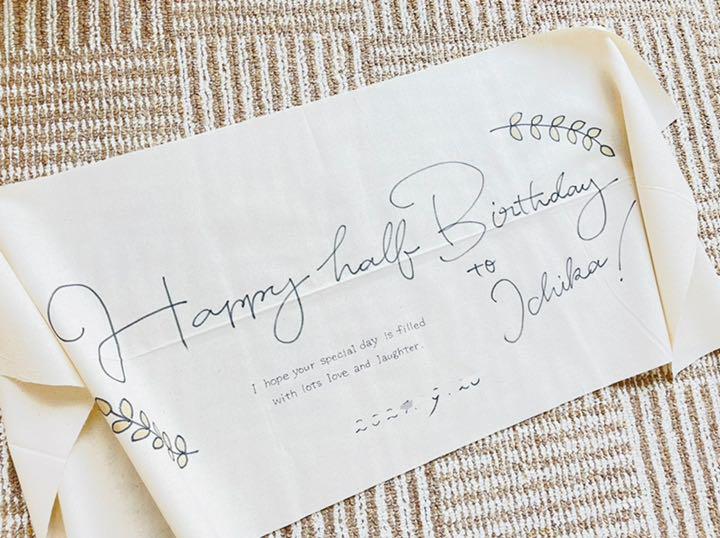 Happy half Birthday
to
Ichika!
I hope your special day is filled
with lots love and laughter.